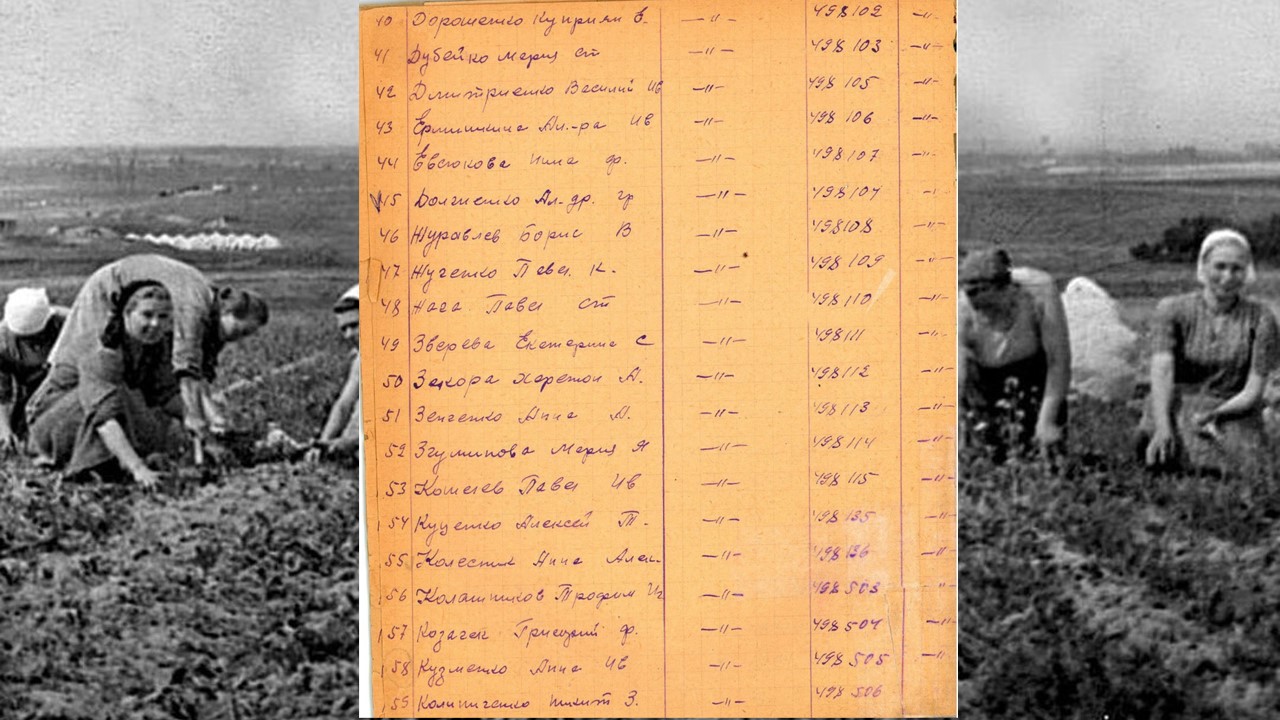 40 Дорошенко Куприян Е. —"— 498102 —"—
41 Дубейко Мария Ст —"— 498103 —"—
42 Дмитриенко Василий Ив —"— 498105 —"—
43 Ермишкина Ал-ра Ив —"— 498106 —"—
44 Евсюкова Нина Ф. —"— 498107 —"—
45 Долженко Ал-др. Гр —"— 498104 —"—
46 Журавлев Борис В —"— 498108 —"—
47 Жученко Павел К. —"— 498109 —"—
48 Павел Ст —"— 498110 —"—
49 Зверева Екатерина С —"— 498111 —"—
50 Харетон А. —"— 498112 —"—
51 Зенченко Анна А. —"— 498113 —"—
52 Згуминова Мария Я —"— 498114 —"—
53 Кошелев Павел Ив —"— 498115 —"—
54 Куценко Алексей Т. —"— 498135 —"—
55 Колесник Анна Алек. —"— 498136 —"—
56 Калашников Трофим Иг —"— 498503 —"—
57 Козачек Григорий Ф. —"— 498504 —"—
58 Кузменко Анна Ив —"— 498505 —"—
59 Калиниченко Никит З. —"— 498506